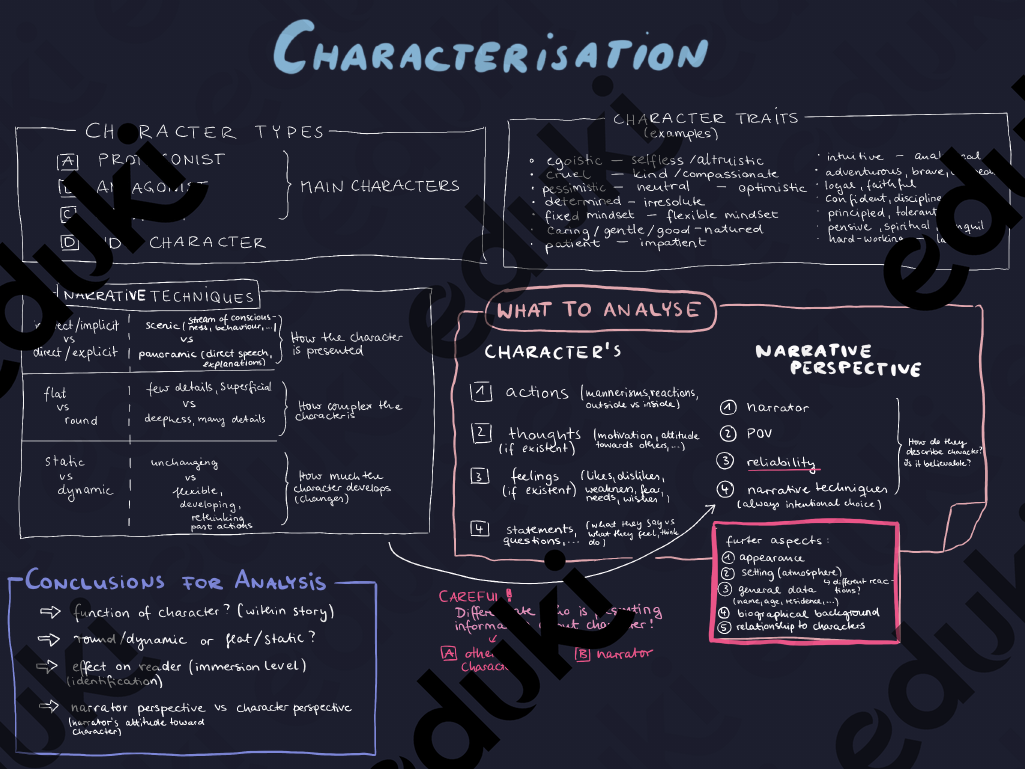 CHARACTERISATION
CHARACTER TYPES
A PROTAGONIST
ANTAGONIST
C
D CHARACTER
MAIN CHARACTERS
CHARACTER TRAITS
(examples)
egoistic — selfless/altruistic
cruel — kind/compassionate
pessimistic — neutral — optimistic
determined — irresolute
fixed mindset — flexible mindset
caring/gentle/good-natured
patient — impatient
intuitive — analytical
adventurous, brave,
loyal, faithful
confident, discipline
principled, tolerant
pensive, spiritual, tranquil
hard-working —
NARRATIVE TECHNIQUES
indirect/implicit
vs
direct/explicit
scenic (steam of conscious-
ness, behaviour,...)
vs
panoramic (direct speech,
explanations)
How the character
is presented
flat
vs
round
few details, superficial
vs
deepness, many details
How complex the
character is
static
vs
dynamic
unchanging
vs
flexible,
developing,
rethinking
past actions
How much the
character develops
(changes)
WHAT TO ANALYSE
CHARACTER'S
1 actions (mannerisms, reactions,
outside vs inside)
2 thoughts (motivation, attitude
(if existent) towards others,...)
3 feelings (likes, dislikes,
(if existent) weaknen, fear,
needs, wishes)
4 statements, (what they say vs
questions,... what they feel, think
do)
NARRATIVE
PERSPECTIVE
1 narrator
2 POV
3 reliability
4 narrative techniques
(always intentional choice)
How do they
describe characks?
Is it believable?
furter aspects:
1 appearance
2 setting (atmosphere)
↳ different reac-
tions?
3 general data
(name, age, residence,...)
4 biographical background
5 relationship to characters
CAREFUL!
Differentiate who is presenting
information about character!
A other
Character
B narrator
CONCLUSIONS FOR ANALYSIS
⇒ function of character? (within story)
⇒ round/dynamic or flat/static?
⇒ effect on reader (immersion level)
(identification)
⇒ narrator perspective vs character perspective
(narrator's attitude toward
character)
eduki
eduki
eduki
eduki
eduki
eduki